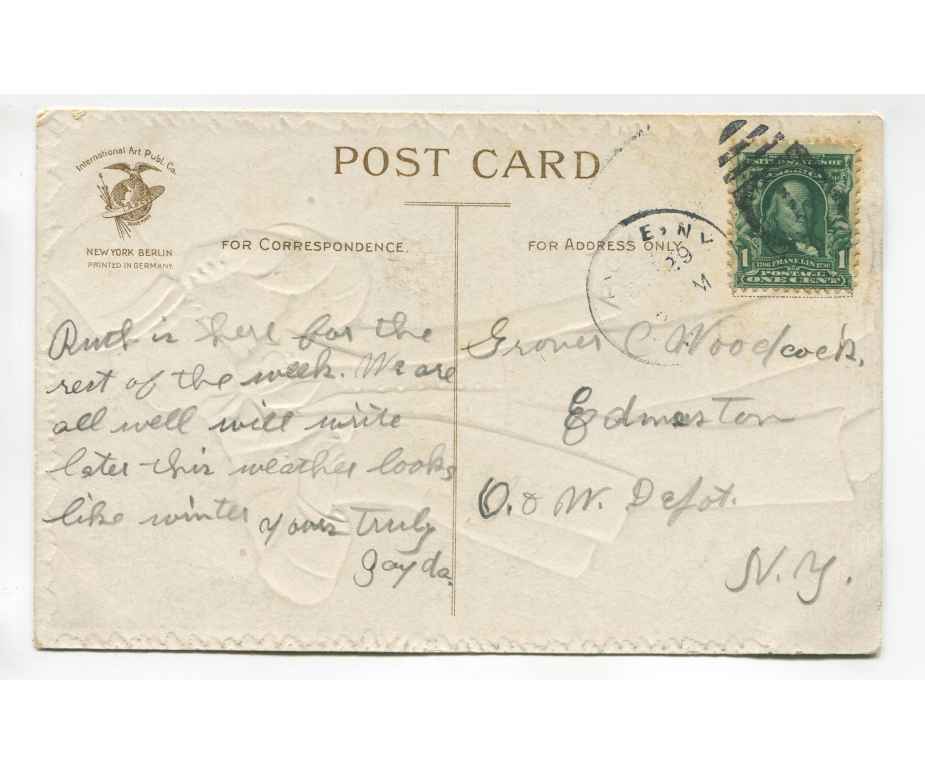 International Art Publ. Co.
NEW YORK BERLIN
PRINTED IN GERMANY
POST CARD
FOR CORRESPONDENCE.
FOR ADDRESS ONLY.
29
M
AMERICA
1 FRANKLIN 1
POSTAGE
ONE CENT
Ruth is here for the
rest of the week. We are
all well will write
later this weather looks
like winter
Yours truly
Grover C Woodcock,
Edmeston
O. & W. Depot.
N. Y.